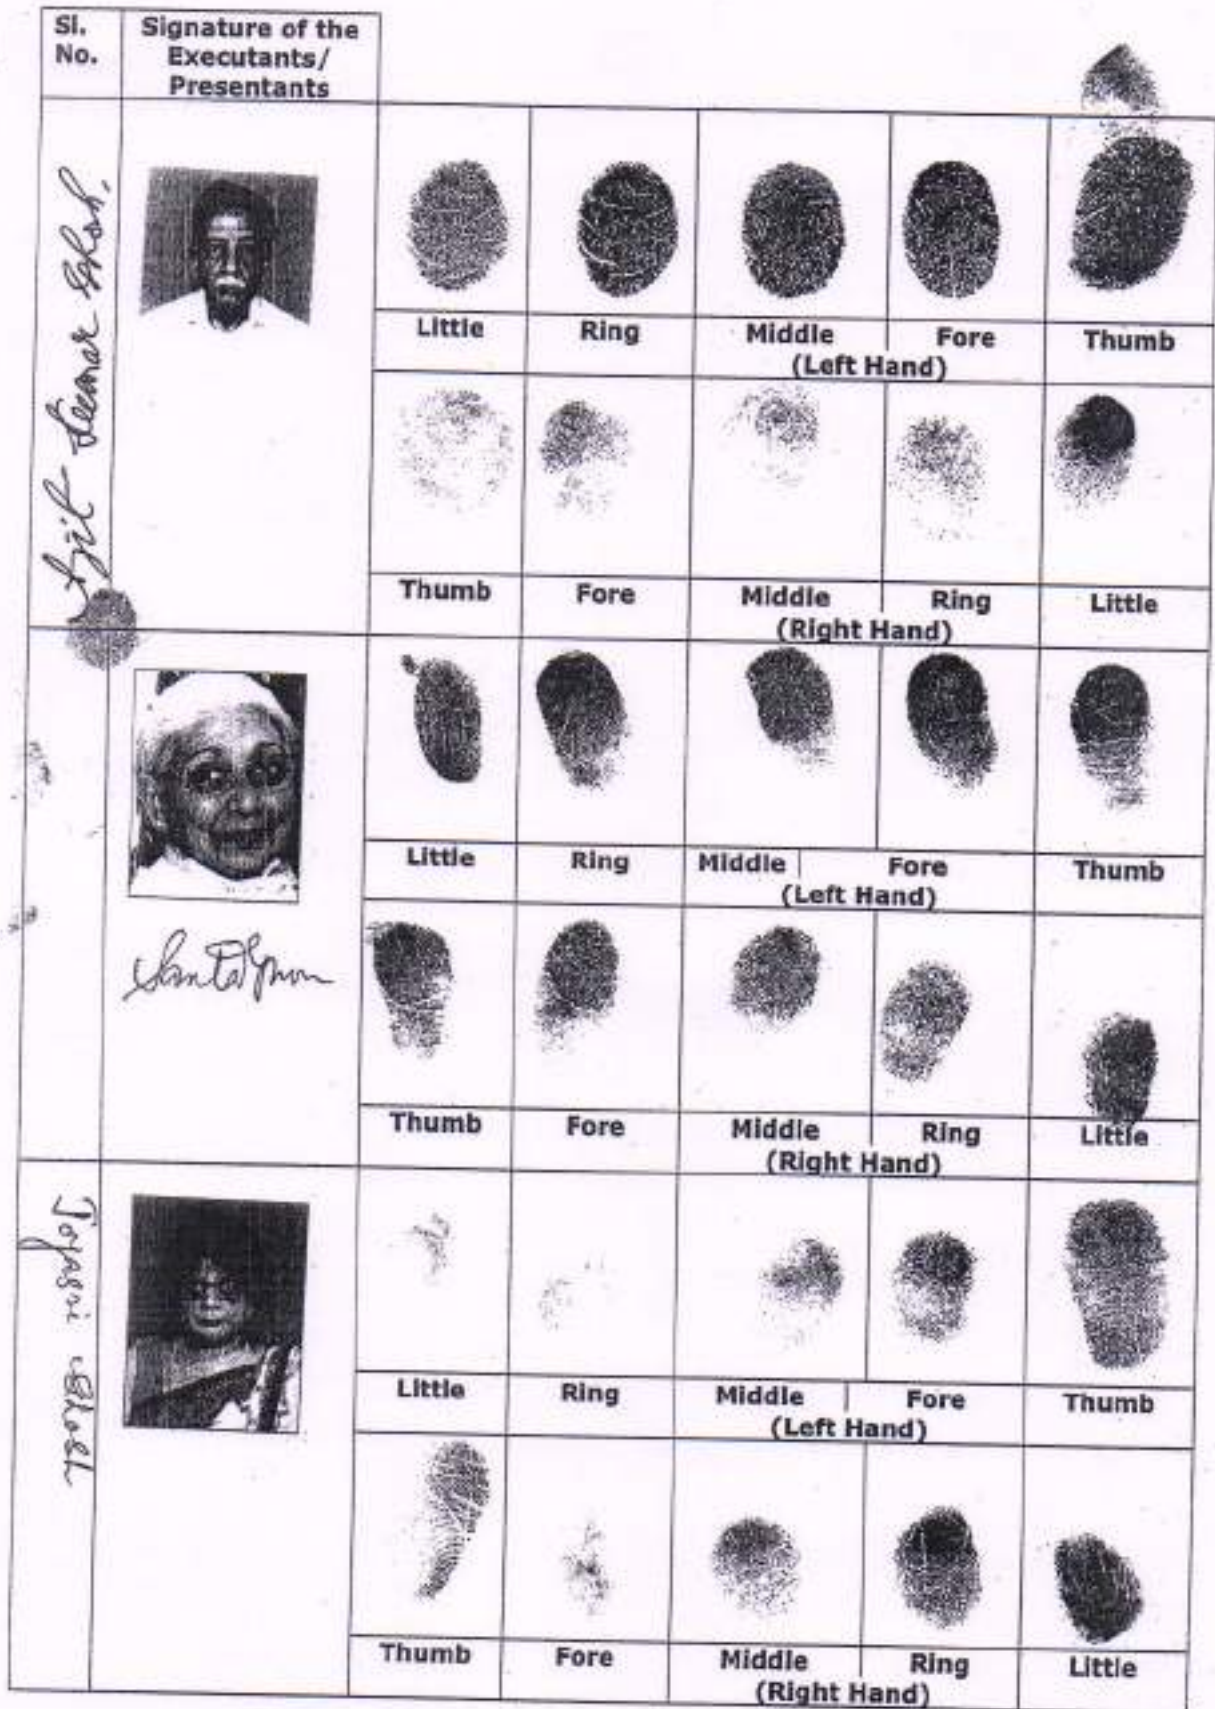 Sl. No.
Signature of the Executants/ Presentants
Ajit Kumar Ghosh.
Little Ring Middle Fore Thumb
(Left Hand)
Thumb Fore Middle Ring Little
(Right Hand)
Little Ring Middle Fore Thumb
(Left Hand)
Thumb Fore Middle Ring Little
(Right Hand)
Ghosh
Little Ring Middle Fore Thumb
(Left Hand)
Thumb Fore Middle Ring Little
(Right Hand)